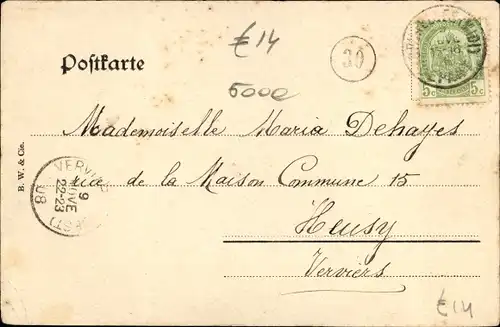 €14
20
5000
Postkarte
5c 5c
Mademoiselle Maria Dehayes
ria de la Maison Commune 15
Heusy
Verviers
B. W. & Cie.
9
NOVE
22-23
08
€14